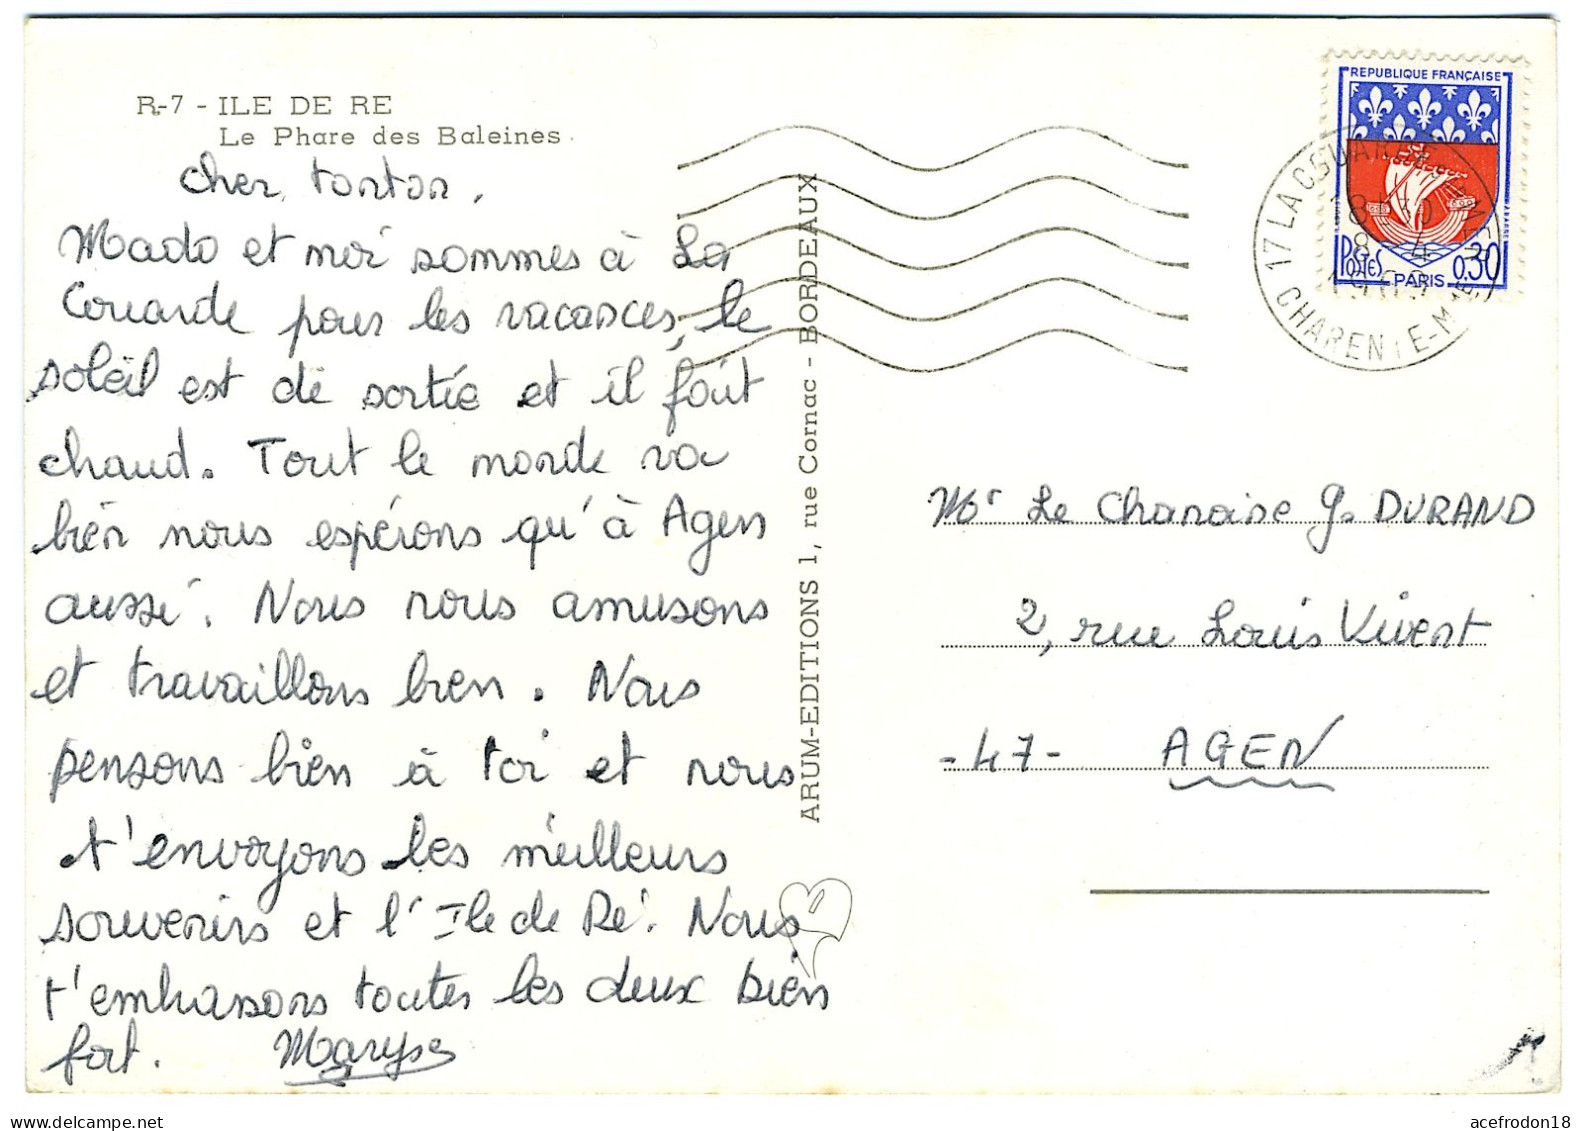 R-7 - ILE DE RE
Le Phare des Baleines
cher tonton,
Mado et moi sommes à La
Couarde pour les vacances, le
soleil est de sortie et il fait
chaud. Tout le monde va
bien nous espérons qu'à Agen
aussi. Nous nous amusons
et travaillons bien. Nous
pensons bien à toi et nous
t'envoyons les meilleurs
souvenirs et l'Ile de Ré. Nous
t'embrassons toutes les deux bien
fort. Maryse
ARUM-EDITIONS 1, rue Cornac - BORDEAUX
REPUBLIQUE FRANÇAISE
POSTES 0,30
PARIS
17 LA COUARDE
CHARENTE-M
Mr Le Chanoine G. DURAND
2, rue Louis Vivent
-47- AGEN
acefrodon18